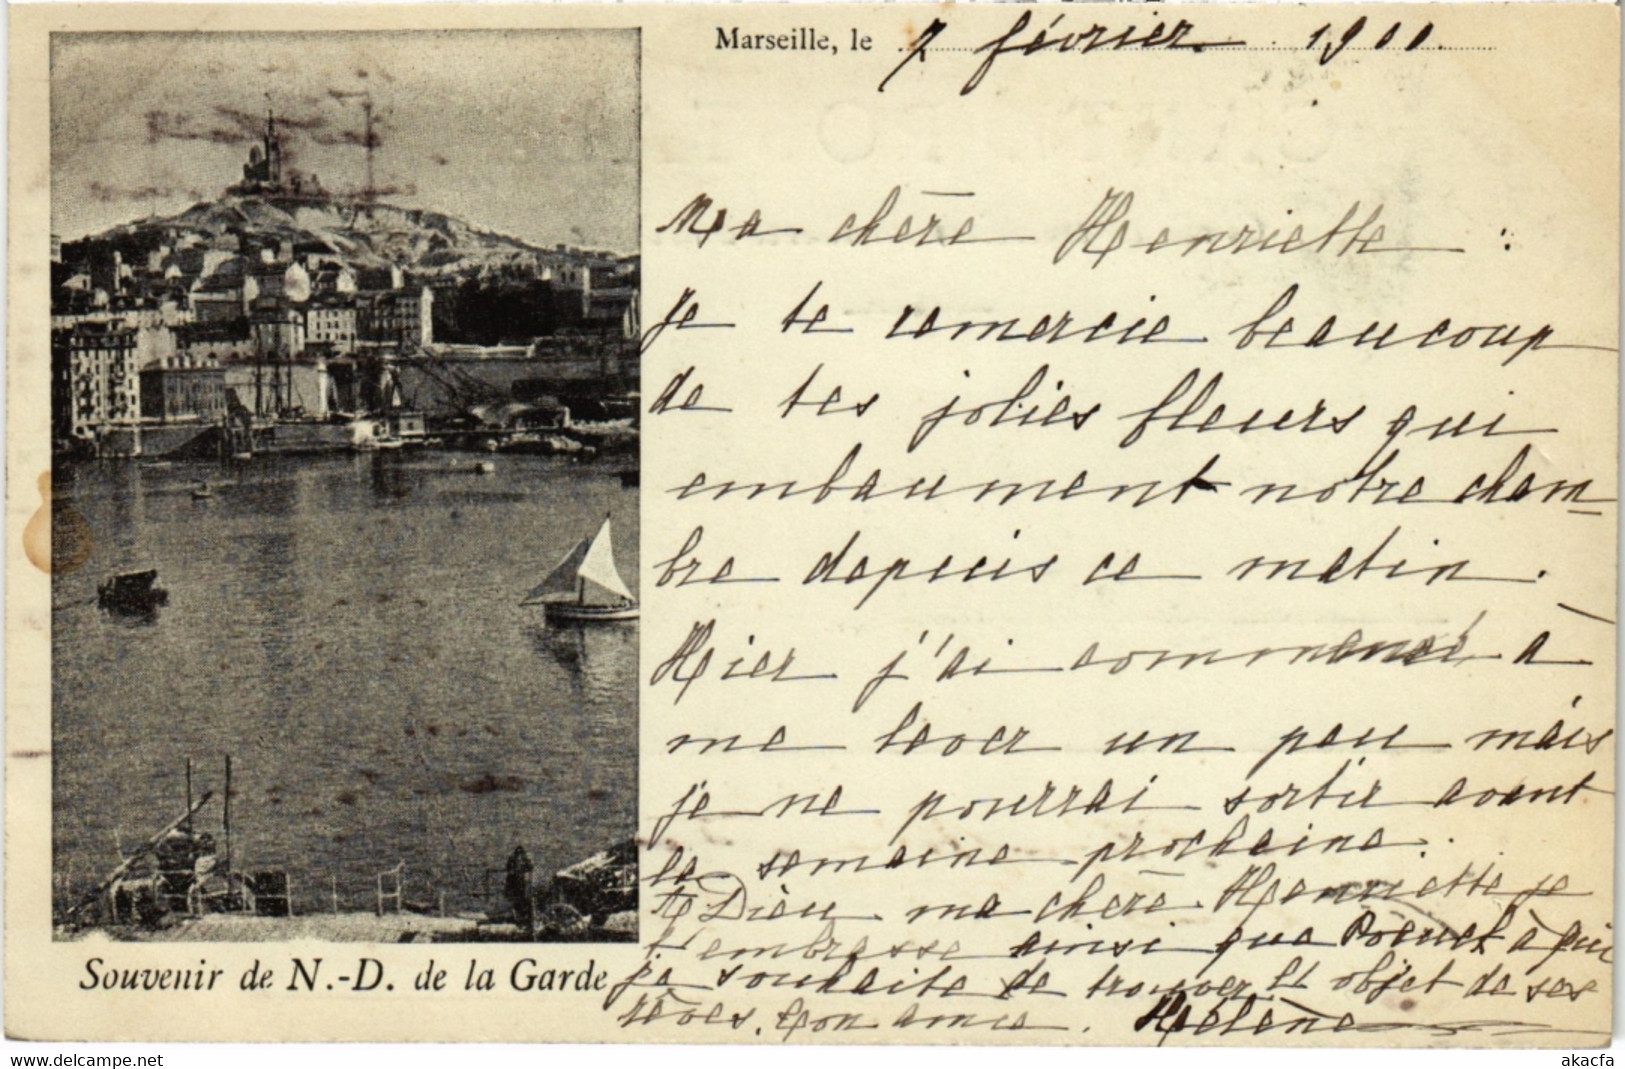 Marseille, le 7 février 1900.
Ma chère Henriette :
je te remercie beaucoup
de tes jolies fleurs qui
embaument notre cham-
bre depuis ce matin.
Hier j'ai commencé à
me lever un peu mais
je ne pourrai sortir avant
la semaine prochaine.
A Dieu ma chère Henriette je
t'embrasse ainsi que à qui
je souhaite de trouver l'objet de ses
rêves. Ton amie. Hélène
Souvenir de N.-D. de la Garde
delcampe.net
akacfa